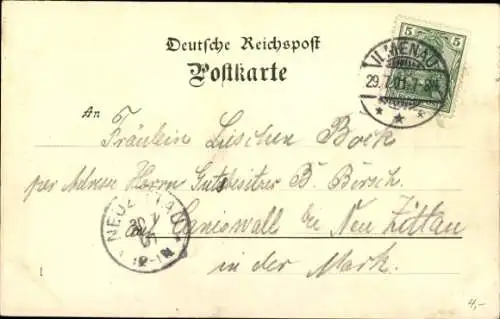 Deutsche Reichspost
Postkarte
5 5
ILMENAU
29.7.01. 7-8N.
An
Fräulein Lieschen Bock
per Adresse Herrn Gutsbesitzer B. Börsch.
auf Caniswall bei Neu Zittau
in der Mark.
NEUZITTAU
30 7
01
12-1N
4,-